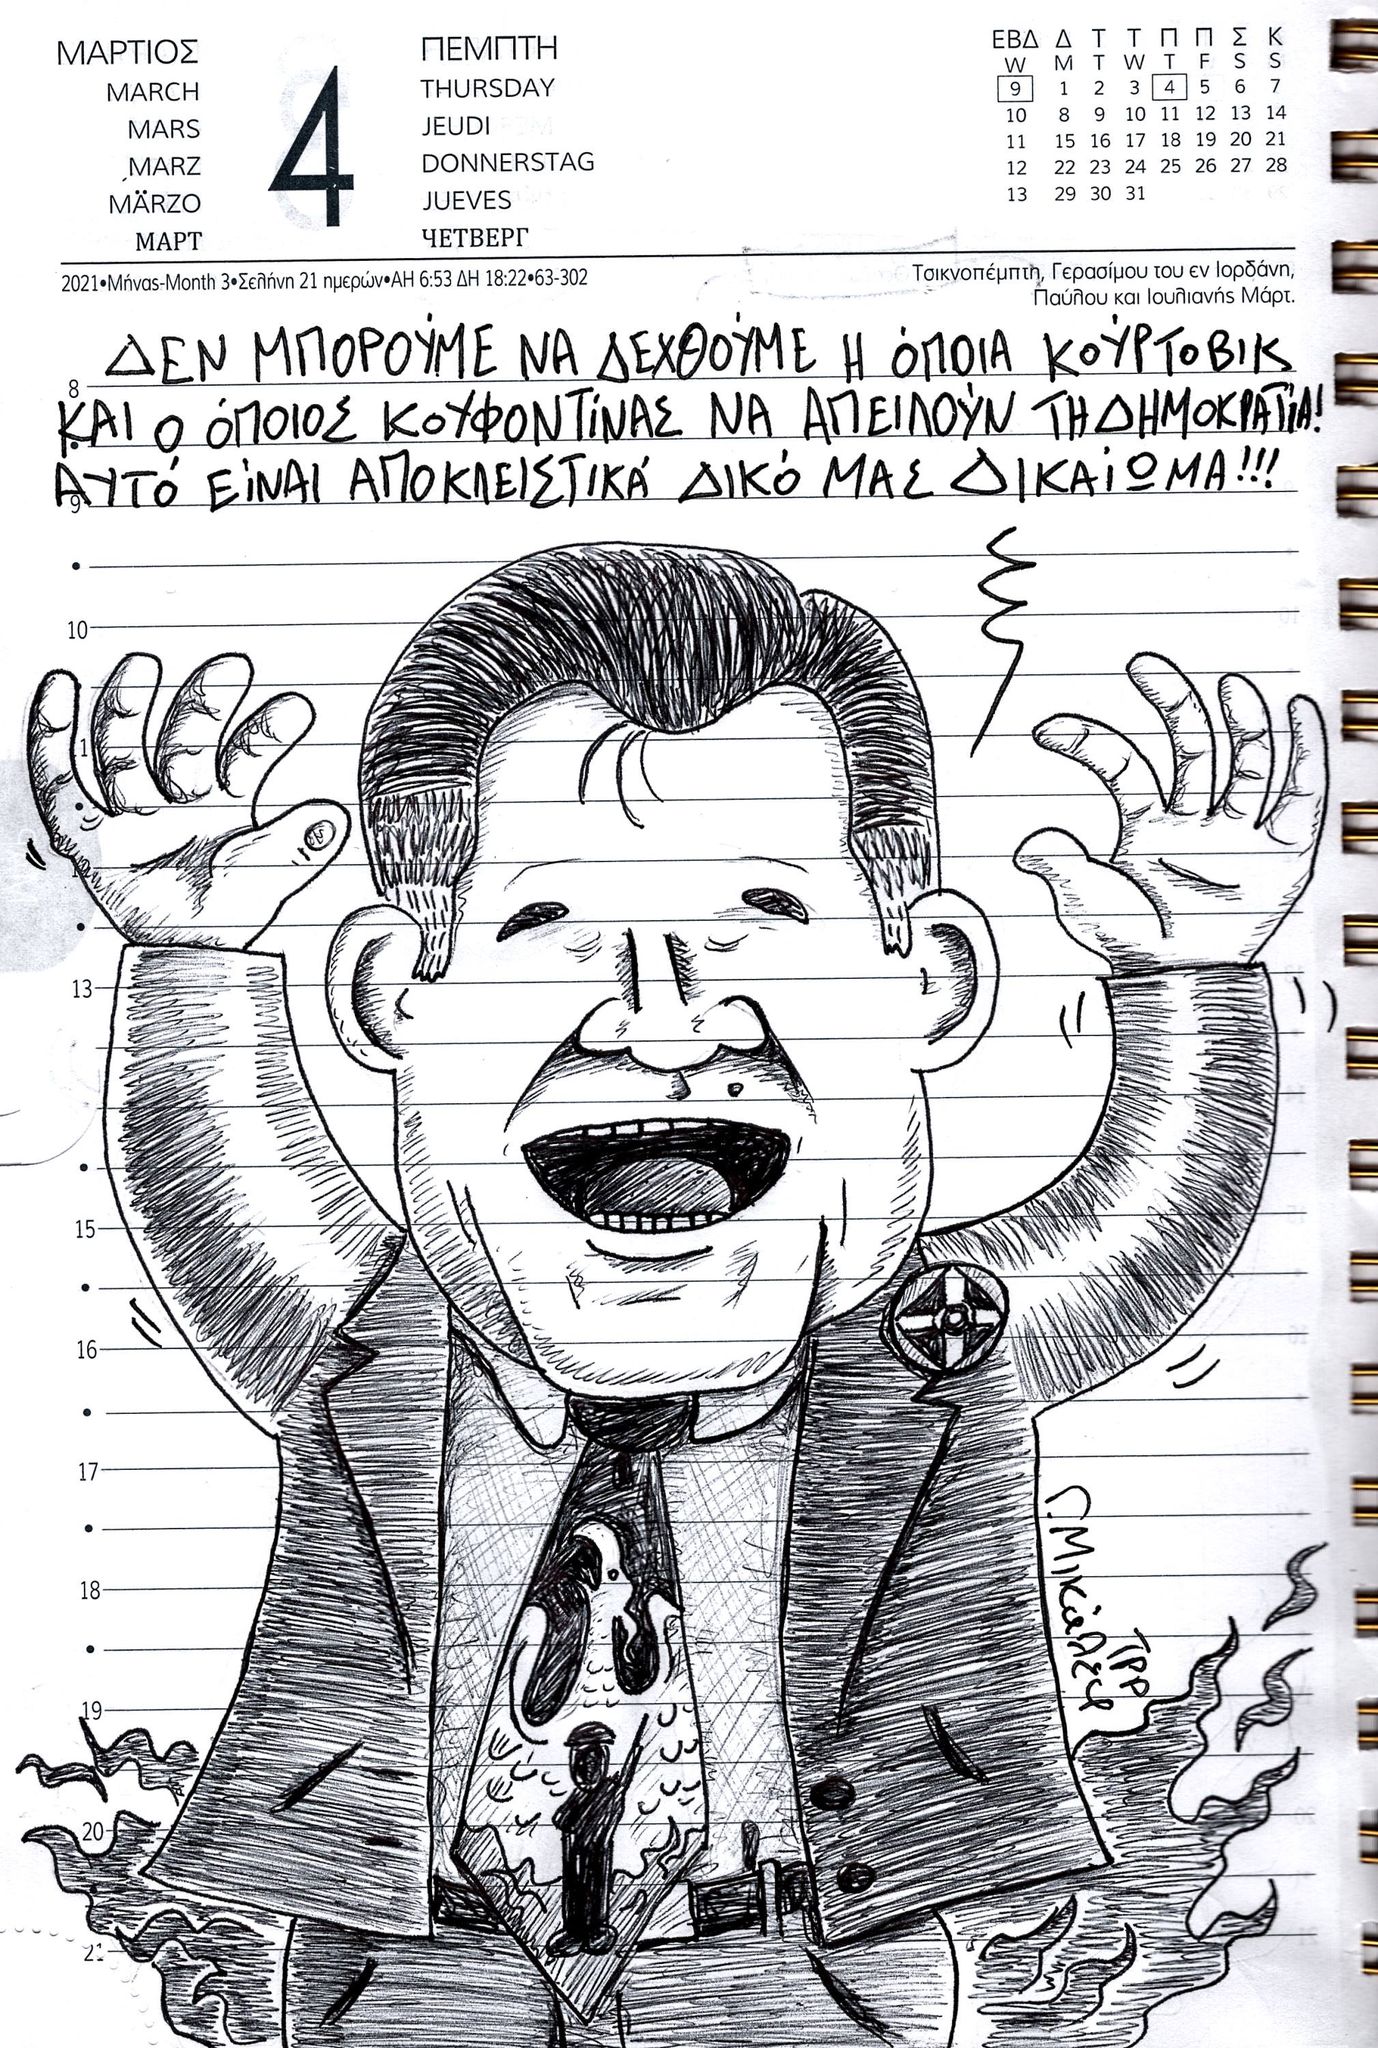 ΜΑΡΤΙΟΣ
MARCH
MARS
MARZ
MÄRZO
МАРТ
4
ΠΕΜΠΤΗ
THURSDAY
JEUDI
DONNERSTAG
JUEVES
ЧЕТВЕРГ
ΕΒΔ Δ Τ Τ Π Π Σ Κ
W M T W T F S S
9 1 2 3 4 5 6 7
10 8 9 10 11 12 13 14
11 15 16 17 18 19 20 21
12 22 23 24 25 26 27 28
13 29 30 31
2021•Μήνας-Month 3•Σελήνη 21 ημερών•ΑΗ 6:53 ΔΗ 18:22•63-302
Τσικνοπέμπτη, Γερασίμου του εν Ιορδάνη,
Παύλου και Ιουλιανής Μάρτ.
ΔΕΝ ΜΠΟΡΟΎΜΕ ΝΑ ΔΕΧΘΟΎΜΕ Η ΌΠΟΙΑ ΚΟΎΡΤΟΒΙΚ
ΚΑΙ Ο ΌΠΟΙΟΣ ΚΟΥΦΟΝΤΊΝΑΣ ΝΑ ΑΠΕΙΛΟΎΝ ΤΗ ΔΗΜΟΚΡΑΤΊΑ!
ΑΥΤΌ ΕΊΝΑΙ ΑΠΟΚΛΕΙΣΤΙΚΆ ΔΙΚΌ ΜΑΣ ΔΙΚΑΊΩΜΑ!!!
8
9
10
11
13
15
16
17
18
19
20
21